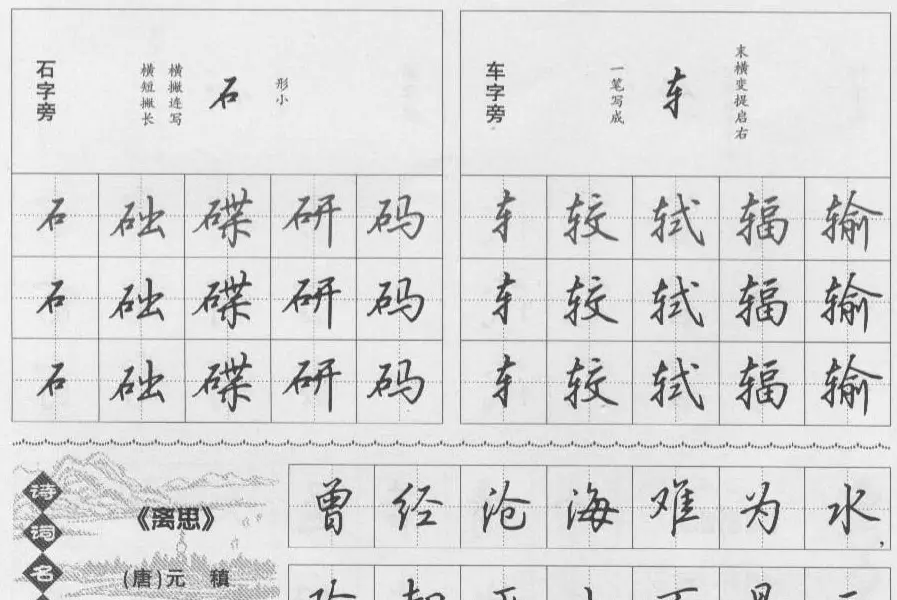 石字旁
横短撇长
横撇连写
石
形小
石 础 碟 研 码
石 础 碟 研 码
石 础 碟 研 码
车字旁
一笔写成
车
末横变提启右
车 较 轼 辐 输
车 较 轼 辐 输
车 较 轼 辐 输
诗词名
《离思》
(唐)元 稹
曾经沧海难为水,